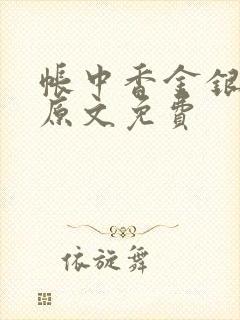 帐中香金银
原文免費
依旋舞